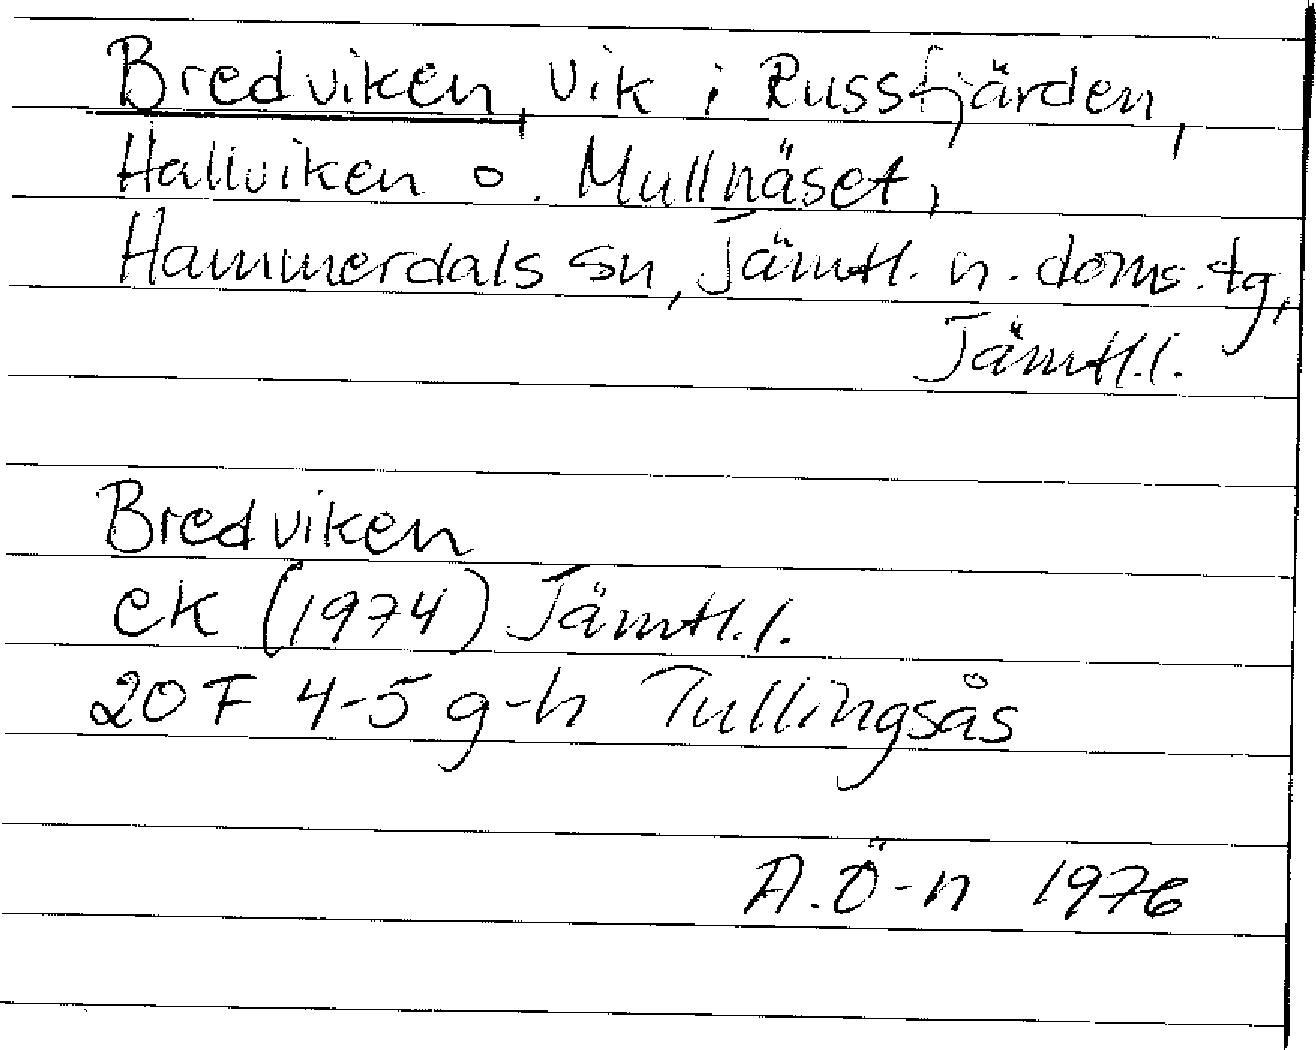 Bredviken, vik i Russfjärden,
Hallviken o. Mullnäset,
Hammerdals sn, Jämtl. n. doms. tg,
Jämtl.l.
Bredviken
ek (1974) Jämtl.l.
20 F 4-5 g-h Tullingsås
A.Ö-n 1976